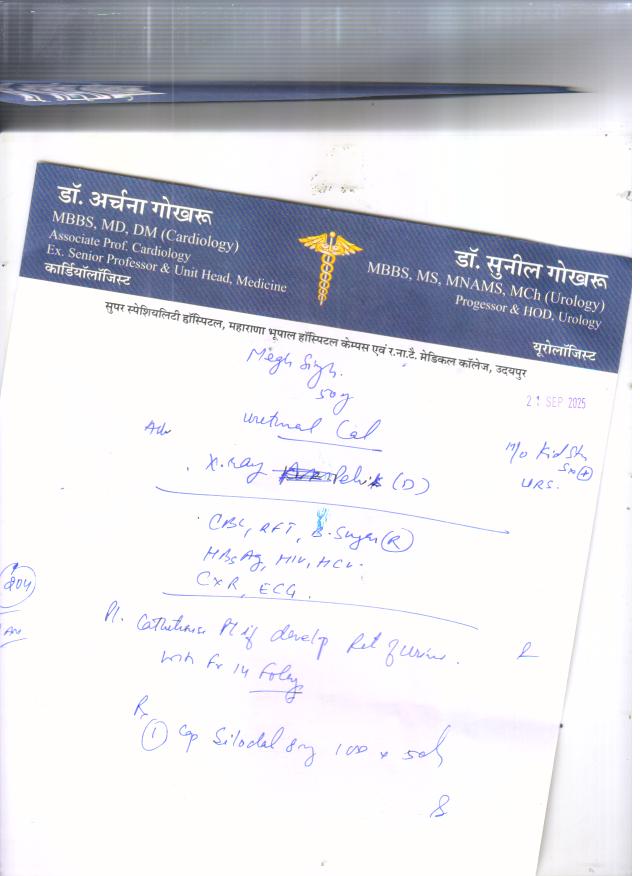 डॉ. अर्चना गोखरू
MBBS, MD, DM (Cardiology)
Associate Prof. Cardiology
Ex. Senior Professor & Unit Head, Medicine
कार्डियॉलॉजिस्ट
डॉ. सुनील गोखरू
MBBS, MS, MNAMS, MCh (Urology)
Progessor & HOD, Urology
यूरोलॉजिस्ट
सुपर स्पेशियलिटी हॉस्पिटल, महाराणा भूपाल हॉस्पिटल केम्पस एवं र.ना.टै. मेडिकल कॉलेज, उदयपुर
Megh Singh.
50y
21 SEP 2025
Cal
Adv
X.ray (D)
URS.
CBC, RFT, B. Sugar (R)
HBsAg, HIV, HCV.
CXR, ECG.
204
Pl. Catheterise Pt if develop Ret of urine.
with Fr 14 Foley
Rx
① Cap Silodal 8mg x 5d